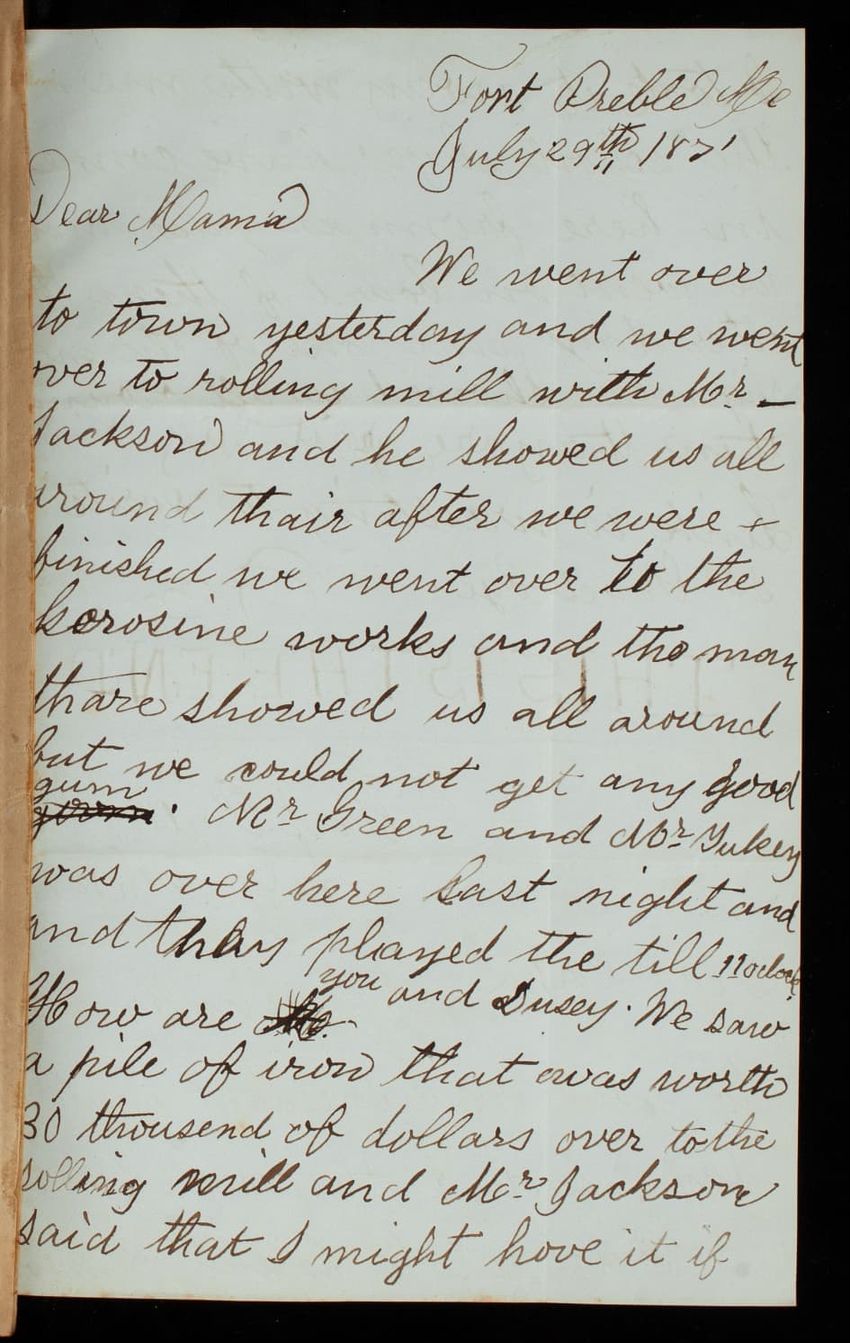 Fort Preble Me
July 29th 1871
Dear Mama
We went over
to town yesterday and we went
over to rolling mill with Mr
Jackson and he showed us all
around thair after we were
finished we went over to the
kerosine works and the man
thare showed us all around
but we could not get any good
gum. Mr Green and Mr Yukey
was over here last night and
and thay played the till 11 oclock.
How are you and Susey. We saw
a pile of iron that was worth
30 thousend of dollars over to the
rolling mill and Mr Jackson
said that I might hove it if